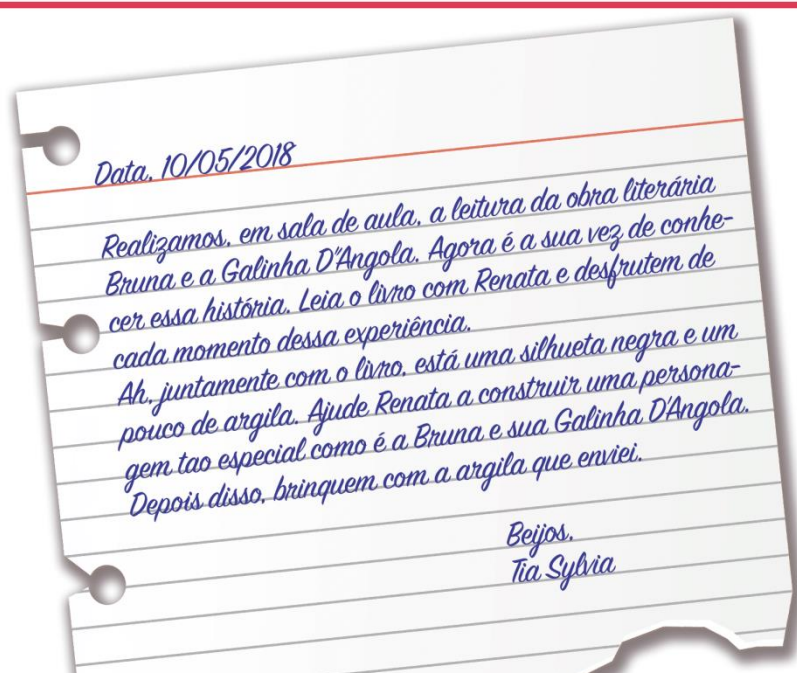 Data, 10/05/2018
Realizamos, em sala de aula, a leitura da obra literária
Bruna e a Galinha D'Angola. Agora é a sua vez de conhe-
cer essa história. Leia o livro com Renata e desfrutem de
cada momento dessa experiência.
Ah, juntamente com o livro, está uma silhueta negra e um
pouco de argila. Ajude Renata a construir uma persona-
gem tao especial como é a Bruna e sua Galinha D'Angola.
Depois disso, brinquem com a argila que enviei.
Beijos,
Tia Sylvia